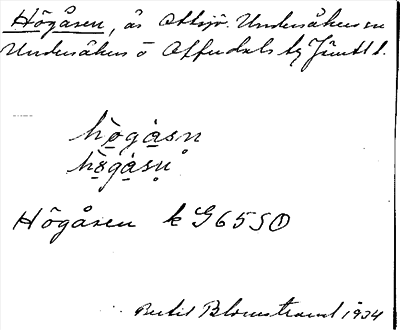 Högåsen, ås Ottsjö. Undersåkers sn
Undersåkers o Offerdals tg Jämtl l.
högåsn
högåsn
Högåsen k G65SO
Bertil Blomstrand 1934